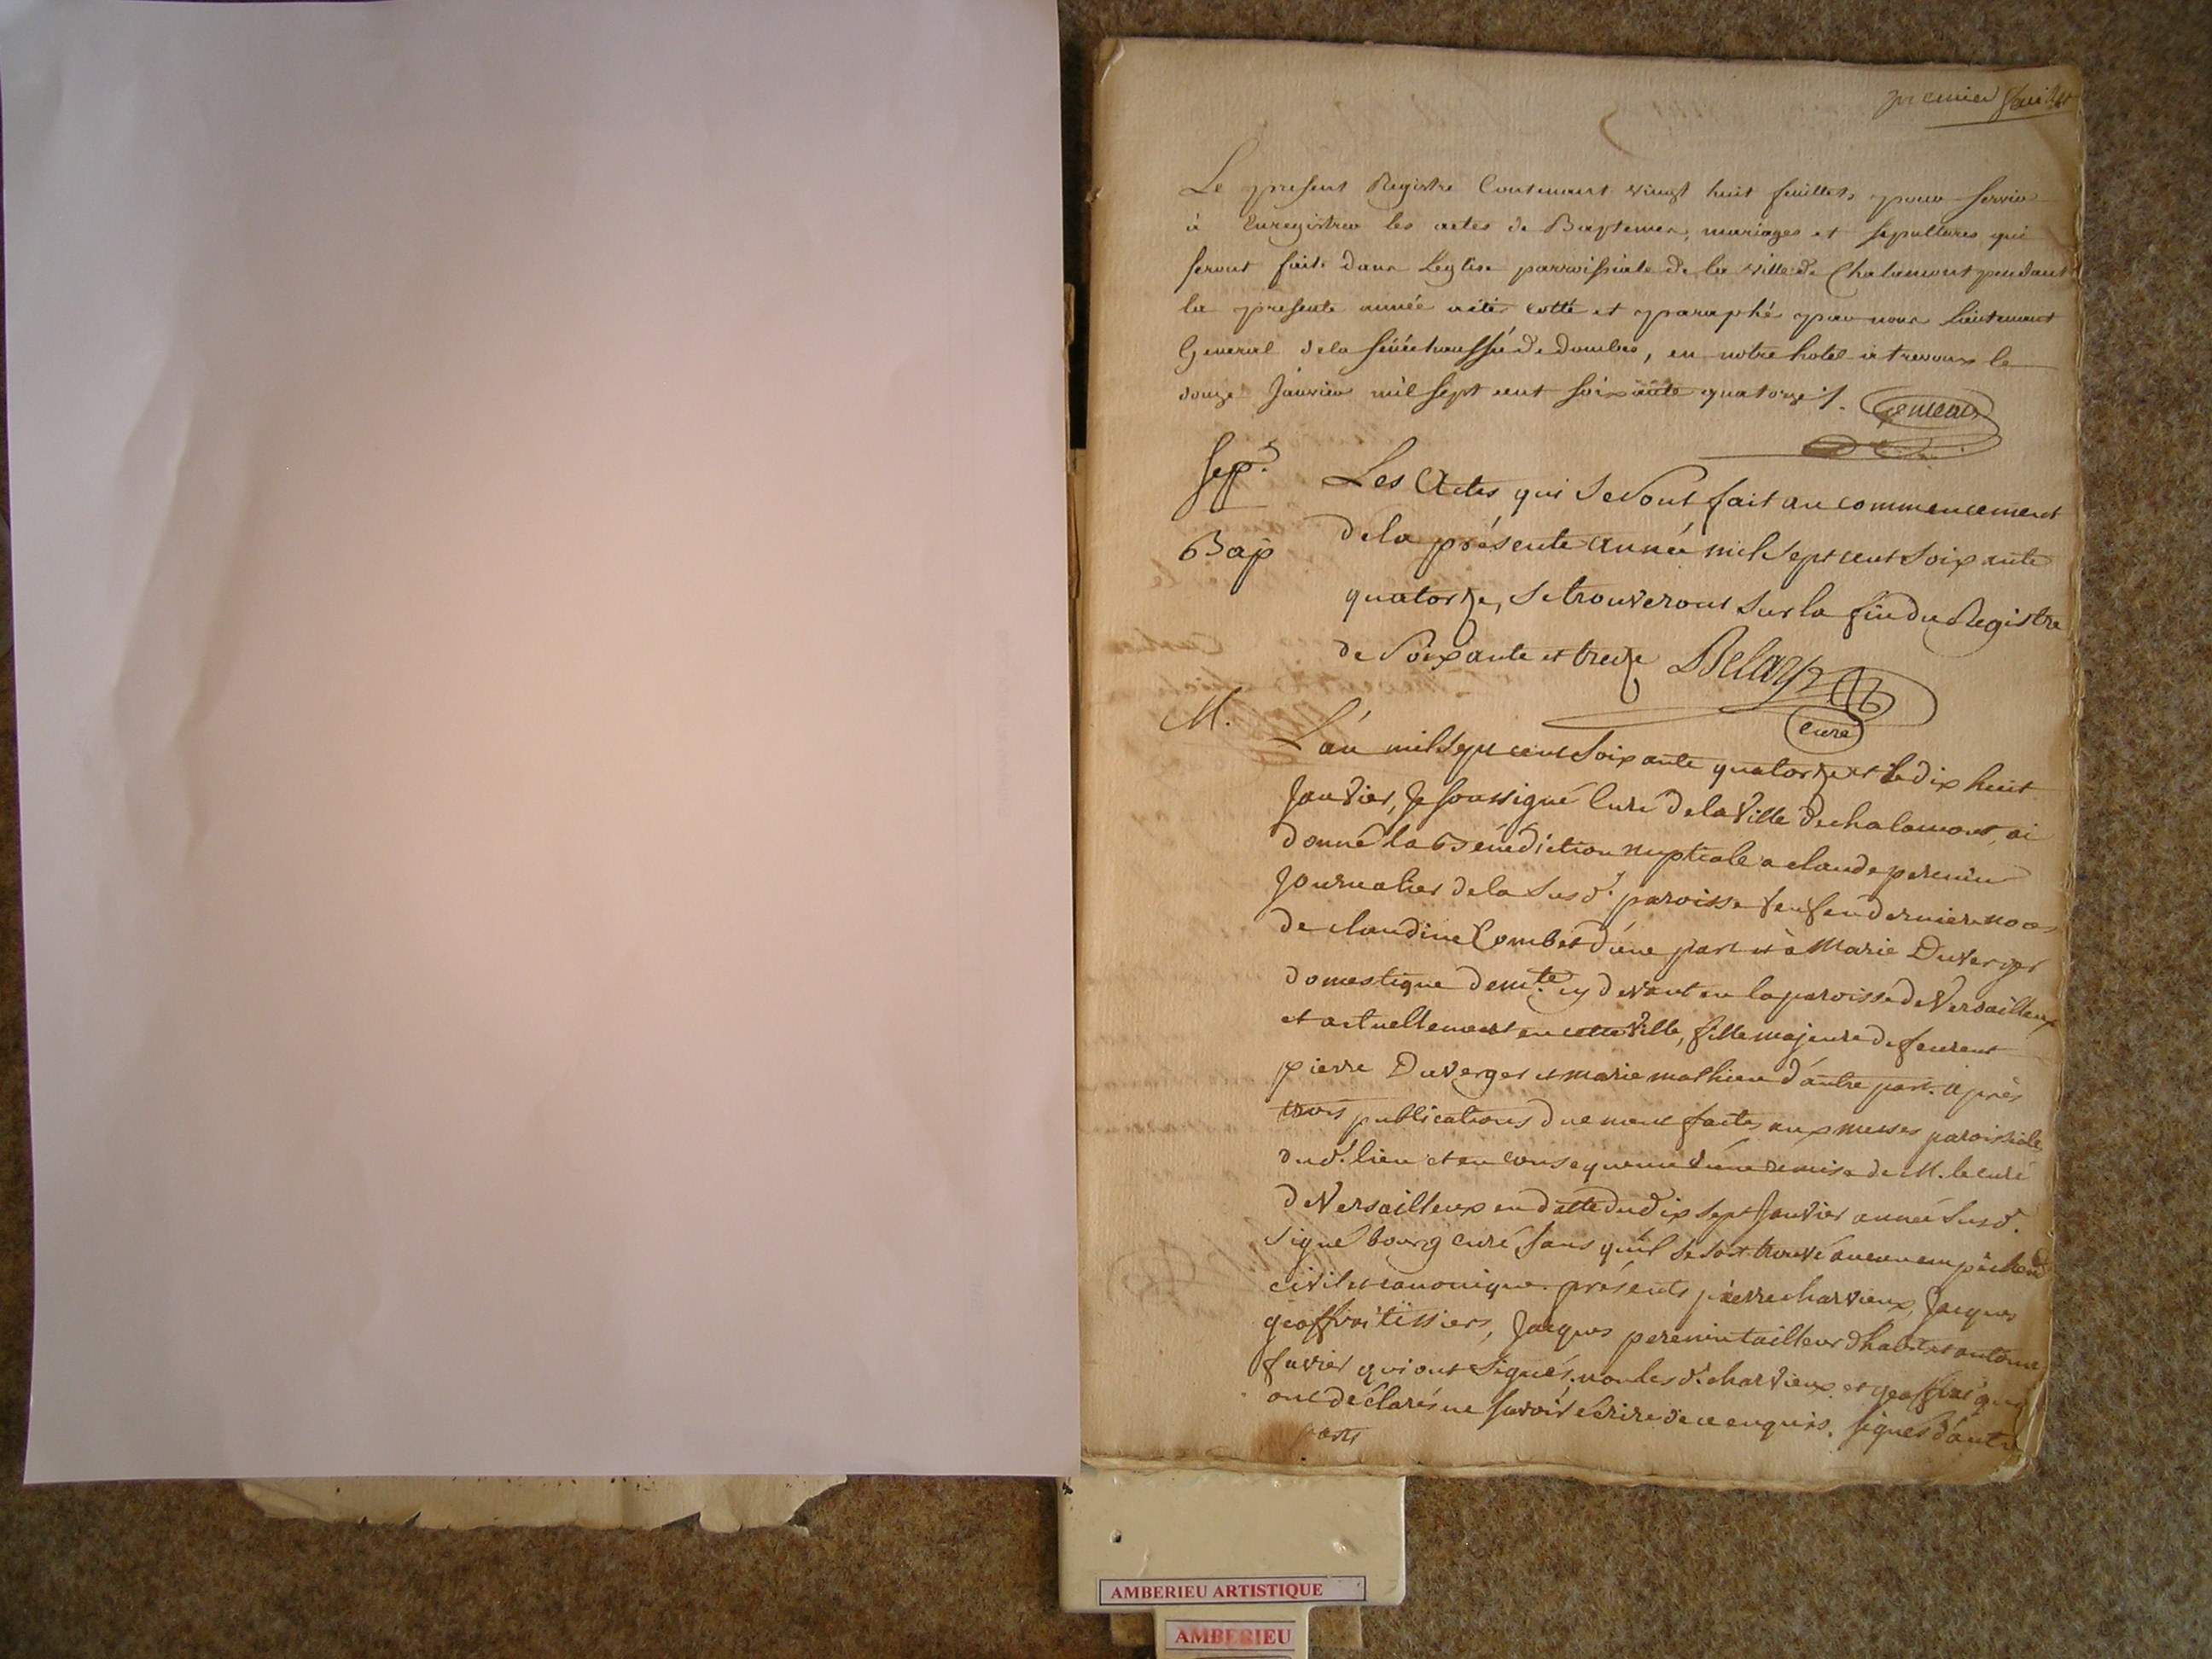 premier feuillet
Le present Registre Contenant vingt huit feuillets pour servir
à Enregistrer les actes de Baptemes, mariages et sepultures qui
seront faits dans Leglise parroissiale de la ville de Chalamont pendant
la presente année a été cotté et paraphé par nous Lieutenant
General de la sénéchaussée de dombes, en notre hotel à trevoux le
douze Janvier mil sept cent soixante quatorze /.
Sep.
Les Actes qui se sont fait au commencement
Bap
de la présente année mil sept cent soixante
quatorze, se trouveront sur la fin du Registre
de soixante et treize Belay
curé
M.
L'an mil sept cent soixante quatorze et le dix huit
Janvier, Je soussigné Curé de la Ville de chalamont, ai
donné la Bénédiction nuptiale a claude perenin
Journalier de la susd. paroisse veuf en dernieres noces
de claudine Combet d'une part et à Marie Duverger
domestique demte. cy devant en la paroisse de Versailleux
et actuellement en cette Ville, fille majeure de feurent
pierre Duverger et marie mathieu d'autre part. après
trois publications duement faites aux messes paroissiales
dud. lieu et en consequence d'une remise de M. le curé
de Versailleux en datte du dix sept Janvier année susd.
signé bourg curé sans qu'il se soit trouvé aucun empêchemt
civil et canonique. présents pierre charvieux, Jacques
geoffrai tissiers, Jacques perenin tailleur d'habits et antoine
favier qui ont signés. non les d. charvieux et geoffrai qui
ont déclarés ne savoir écrire de ce enquis. signés d'autre
parts
AMBERIEU ARTISTIQUE
AMBERIEU